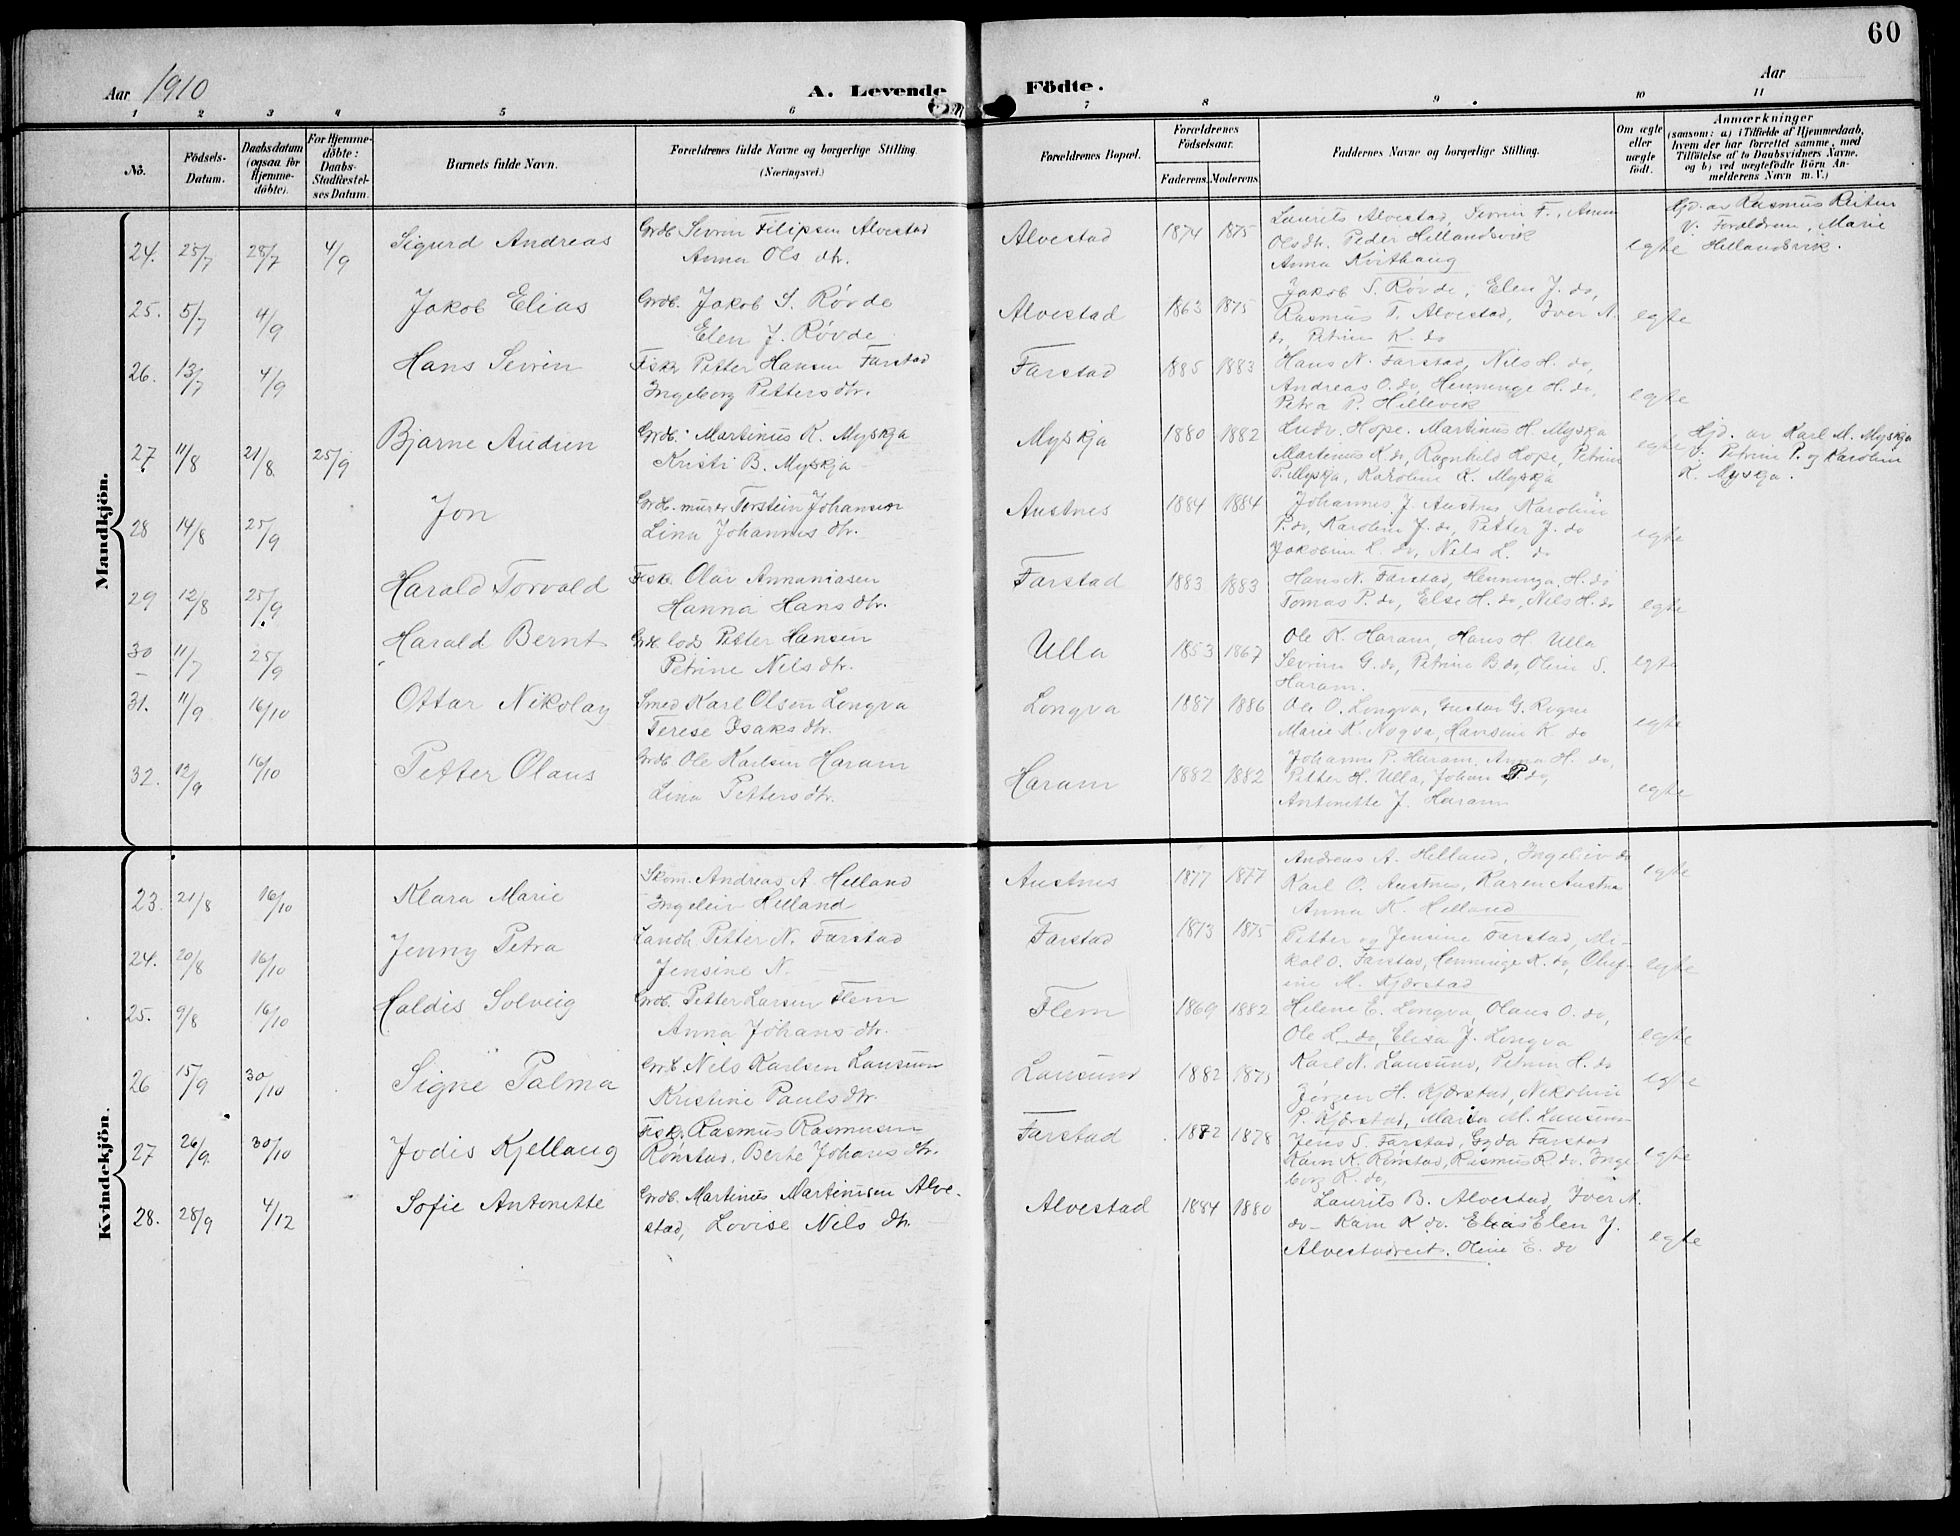 60
Aar 1910
A. Levende Födte.
Aar
1 2 3 4 5 6 7 8 9 10 11
No.
Födsels-
Datum.
Daabsdatum
(ogsaa for
Hjemme-
döbte).
For Hjemme-
döbte:
Daabs-
Stadfæstel-
ses Datum.
Barnets fulde Navn.
Forældrenes fulde Navne og borgerlige Stilling.
(Næringsvei.)
Forældrenes Bopæl.
Forældrenes
Födselsaar.
Faderens. Moderens.
Faddernes Navne og borgerlige Stilling.
Om ægte
eller
uægte
födt.
Anmærkninger
(saasom: a) i Tilfælde af Hjemmedaab,
hvem der har forrettet samme, med
Tilföielse af to Daabsvidners Navne,
og b) ved uægtefödte Börn An-
melderens Navn m. V.)
Mandkjön.
24. 25/7 28/7 4/9 Sigurd Andreas
Grdb. Sevrin Filipsen Alvestad
Anna Ols dtr.
Alvestad 1874 1875
Laurits Alvestad, Sevrin F., Anna
Olsdtr. Peder Hellandsvik
Anna Kvithaug
egte
Hjd. av Rasmus
v. Foreldrene, Marie
Hellandsvik.
25. 5/7 4/9 Jakob Elias
Grdb. Jakob S. Røvde
Elen J. Røvde
Alvestad 1863 1875
Jakob S. Røvde, Elen J. do,
Rasmus T. Alvestad, Iver N.
do, Petrine K. do
egte
26. 13/7 4/9 Hans Sevrin
Fisk. Petter Hansen Farstad
Ingeborg Petters dtr.
Farstad 1885 1883
Hans N. Farstad, Nils H. do,
Andreas O. do, Henninge H. do,
Petra P. Hellevik
egte
27 11/8 21/8 25/9 Bjarne Audun
Grdb. Martinus K. Myskja
Kristi B. Myskja
Myskja 1880 1882
Ludv. Hope. Martinus H. Myskja
Martinus K do, Ragnhild Hope, Petrine
P. Myskja, Karoline K. Myskja
egte
Hjd. av Karl M. Myskja
v. Petrine P. og Karoline
K. Myskja.
28 14/8 25/9 Jon
Grdb. murer Torstein Johansen
Lina Johannes dtr.
Austnes 1884 1884
Johannes J. Austnes, Karoline
P. do, Karoline J. do, Petter J. do
Jakobine L. do, Nils L. do
egte
29 12/8 25/9 Harald Torvald
Fisk. Olav Annaniasen
Hanna Hans dtr.
Farstad 1883 1883
Hans N. Farstad, Henninga H. do
Tomas P. do, Else H. do, Nils H. do
egte
30 11/7 25/9 Harald Bernt
Grdb. lods Petter Hansen
Petrine Nils dtr.
Ulla 1853 1867
Ole K. Haram, Hans H. Ulla
Sevrine G. do, Petrine B. do, Oline S.
Haram.
egte
31. 11/9 16/10 Ottar Nikolay
Smed Karl Olsen Longva
Terese Isaks dtr.
Longva 1887 1886
Ole O. Longva, Gustav G. Rogne
Marie K. Nogva, Hansine K. do
egte
32. 12/9 16/10 Petter Olaus
Grdb Ole Karlsen Haram
Lina Petters dtr.
Haram 1882 1882
Johannes P. Haram, Anna H. do,
Petter H. Ulla, Johan P. do,
Antonette J. Haram
egte
Kvindekjön.
23. 21/8 16/10 Klara Marie
Skom. Andreas A. Helland
Ingeleiv Helland
Austnes 1877 1877
Andreas A. Helland, Ingeleiv do
Karl O. Austnes, Karen Austnes
Anna K. Helland
egte
24. 20/8 16/10 Jenny Petra
Landh. Petter N. Farstad
Jensine N.
Farstad 1873 1875
Petter og Jensine Farstad, Mi-
kal O. Farstad, Henninge K. do, Oluf-
ine M. Kjærstad
egte
25. 9/8 16/10 Haldis Solveig
Grdb. Petter Larsen Flem
Anna Johans dtr.
Flem 1869 1882
Helene E. Longva, Olaus O. do,
Ole L. do, Elisa J. Longva
egte
26 15/9 30/10 Signe Palma
Grdb. Nils Karlsen Lausund
Kristine Pauls dtr.
Lausund 1882 1875
Karl N. Lausund, Petrine H. do
Jørgen H. Kjærstad, Nikoline
P. Kjærstad, Maria M. Lausund
egte
27 26/9 30/10 Jodis Kjellaug
Fisk. Rasmus Rasmusen
Rønstad, Berte Johans dtr.
Farstad 1872 1878
Jens S. Farstad, Gyda Farstad
Karn K. Rønstad, Rasmus R. do. Inge-
borg R. do,
egte
28. 28/9 4/12 Sofie Antonette
Grdb. Martinus Martinusen Alve-
stad, Lovise Nils dtr.
Alvestad 1884 1880
Laurits B. Alvestad, Iver N.
do – Karn K do. Elias Elen J.
Alvestadreit. Oline E. do
egte